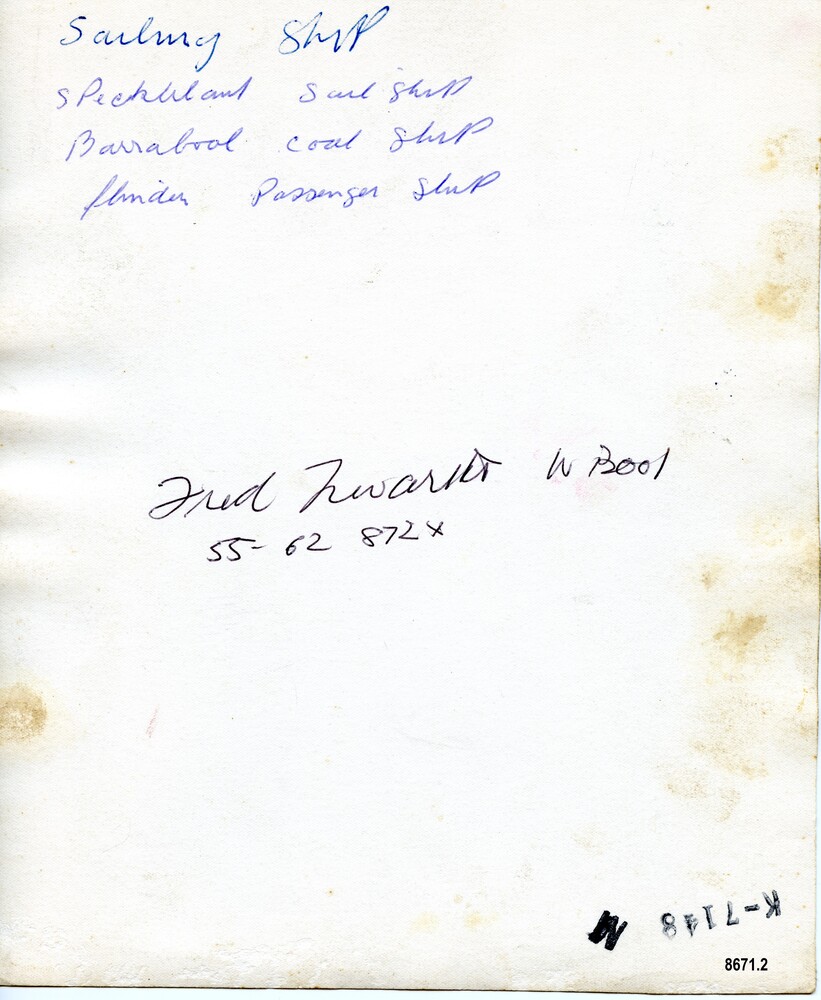 Sailing ShiP
sPeckulant Sail ShiP
Barrabool coal ShiP
flinders Passenger ShiP
Fred W Bool
55- 62 872x
K-7148
8671.2